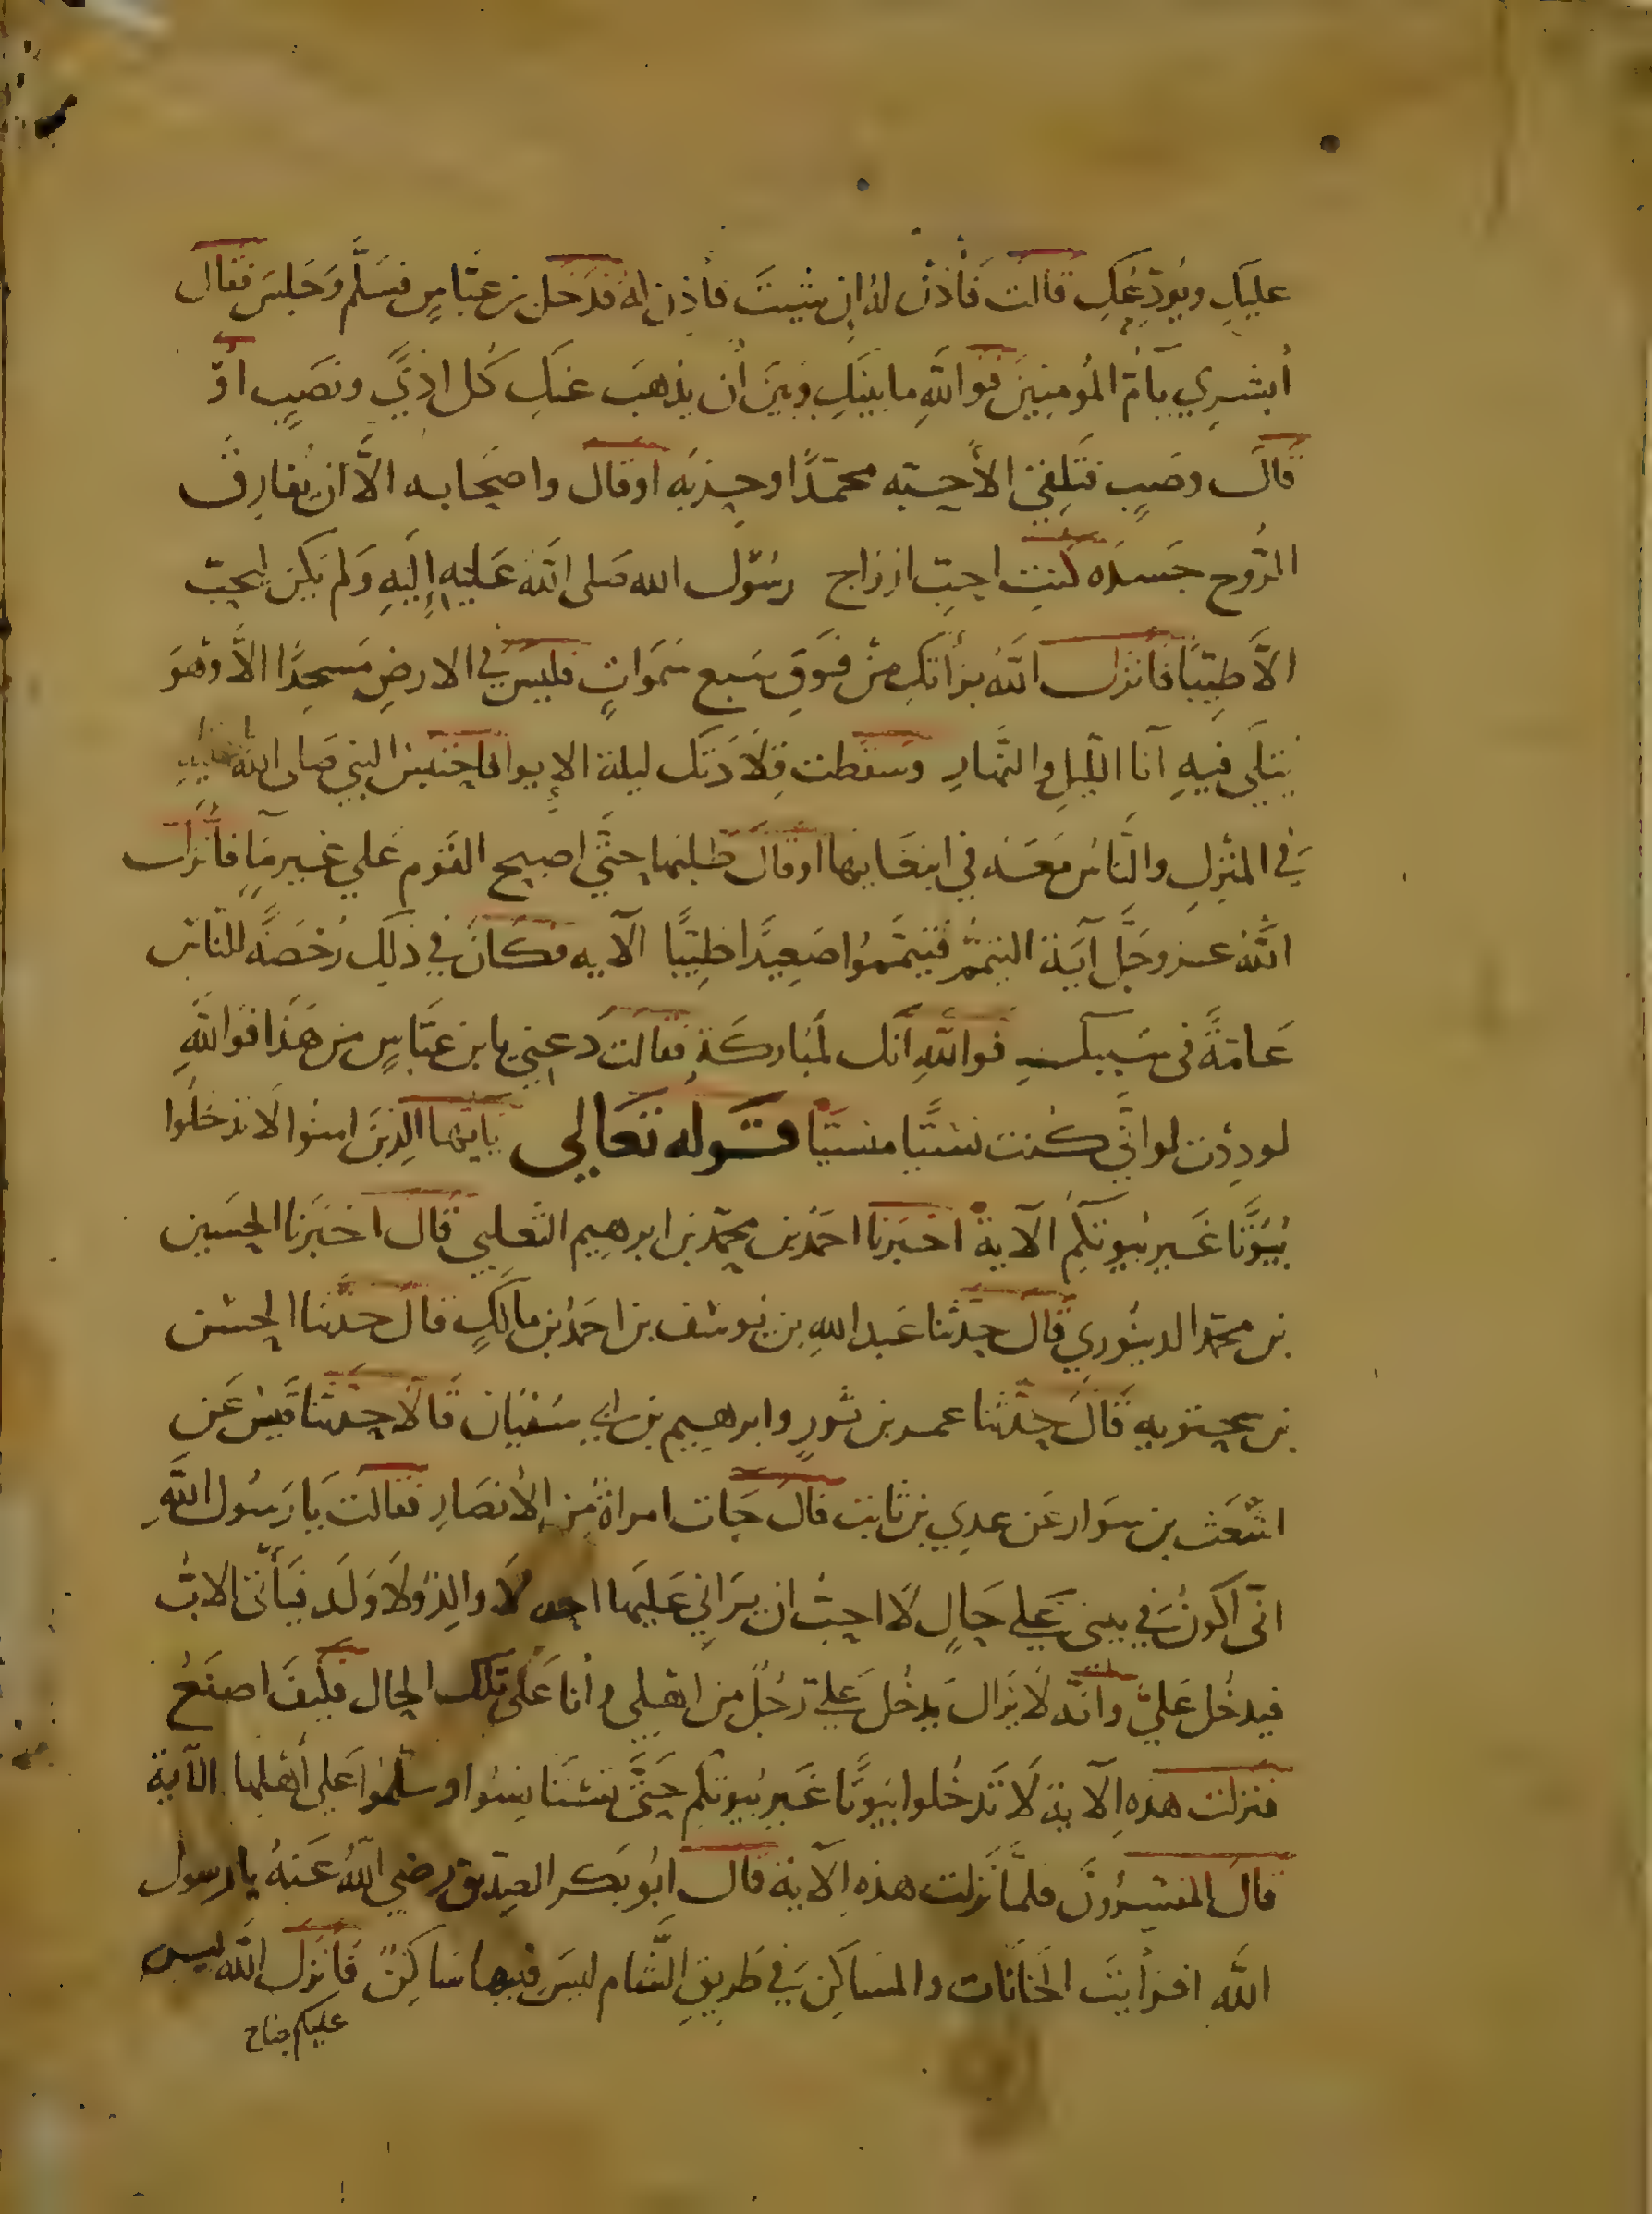 عليكِ ويُودِّعُكِ قالت فأذنْ لهُ ان شيتَ فأذِن له فدَخل بن عبّاسٍ فسَلّم وَجَلسَ فقالَ
أبشري يآمّ المُومنينَ فوَاللهِ ما بينَكِ وبينَ أن يذهبَ عنكِ كل اذيً ونصَبٍ اوْ
قالَ وصَبٍ فتَلقيْ الأحبّه محمّدًا وحِزبَه او قال واصحابه الاَّ ان يُفارقَ
الرُّوح جَسَدَه كنتِ احبّ ازواج رسُول الله صَلى اللهُ عَليهِ إليهِ وَلم يَكن يُحبّ
الاَّ طيّبًا فانزل اللهُ بَرأتكِ منْ فوَقِ سَبع سَمَواتٍ فليسَ في الارضِ مَسجدًا الاَّ وهوَ
يُتلَى فيهِ آنا اللّيلِ والنّهارِ وسَقطت قِلاَدَتك ليلة الابوا فاحتبسَ النبي صَلى الله عليهِ
في المنزلِ والنّاسُ مَعَه في ابتغايها او قال طلبَها حَتّي اصبح القوم عَلي غير مآءٍ فأنزل
اللهُ عز وجَلّ آيَة التيمُّمِ فتيمّمُوا صَعيدًا طيّبًا الآيه فكانَ في ذلِك رُخصَةً للنّاسِ
عَامّةً في سَببكِ فواللهِ انّك لمُباركَةٍ فقالت دَعني يا بن عبَّاسٍ من هَذا فواللهِ
لودِدْت لو انّي كنت نسْيًا منسيّا قوله تعَالى يآيّها الذينَ امنُوا لاَ تدخلُوا
بُيُوتًا غَير بُيوتكمُ الآية اخبَرنا احمَدُ بن محمّد بن ابرهيم الثّعلبي قال اخبَرنا الحُسَين
بن محمّد الدينُوري قال حدّثنا عَبد اللهِ بن يُوسُف بن احمَدُ بن مالكٍ قالَ حدّثنا الحسْن
بن سحتويه قالَ حدّثنا عمر بن ثورٍ وابرهيم بن ابي سُفيَان قَالاَ حدّثنا قيسُ عَن
اشْعَث بن سَوار عَن عدِي بن ثابت قال جَات امراةٌ منَ الأنصَارِ فقالت يَا رَسُول اللهِ
انّي اكونُ في بيتي عَلي حَالٍ لاَ احبُّ ان يَرَاني عَليهَا احد لاَ والدٌ ولاَ وَلَد فيَأتي الابُ
فيدخُل عَليّ وانّه لاَ يزالَ يدخُل عَليّ رجُلٌ من اهْلي وأنا عَلَى تلكَ الحال فكيفَ اصنَعُ
فنزلت هَذهِ الآية لاَ تَدخُلوا بيُوتًا غَير بُيوتكم حَتَّى تسْتَانِسُوا وسلّمُوا عَلي أهْلها الآية
قالَ المفسّرُونَ فلمَّا نَزلت هذهِ الآية قال ابُو بَكر الصدّيق رضي اللهُ عَنهُ يا رسول
الله افرأيتَ الخانَات والمسَاكن في طريقِ الشّام ليسَ فيها سَاكنٌ فأنزلَ اللهُ ليس
عليكم جناح